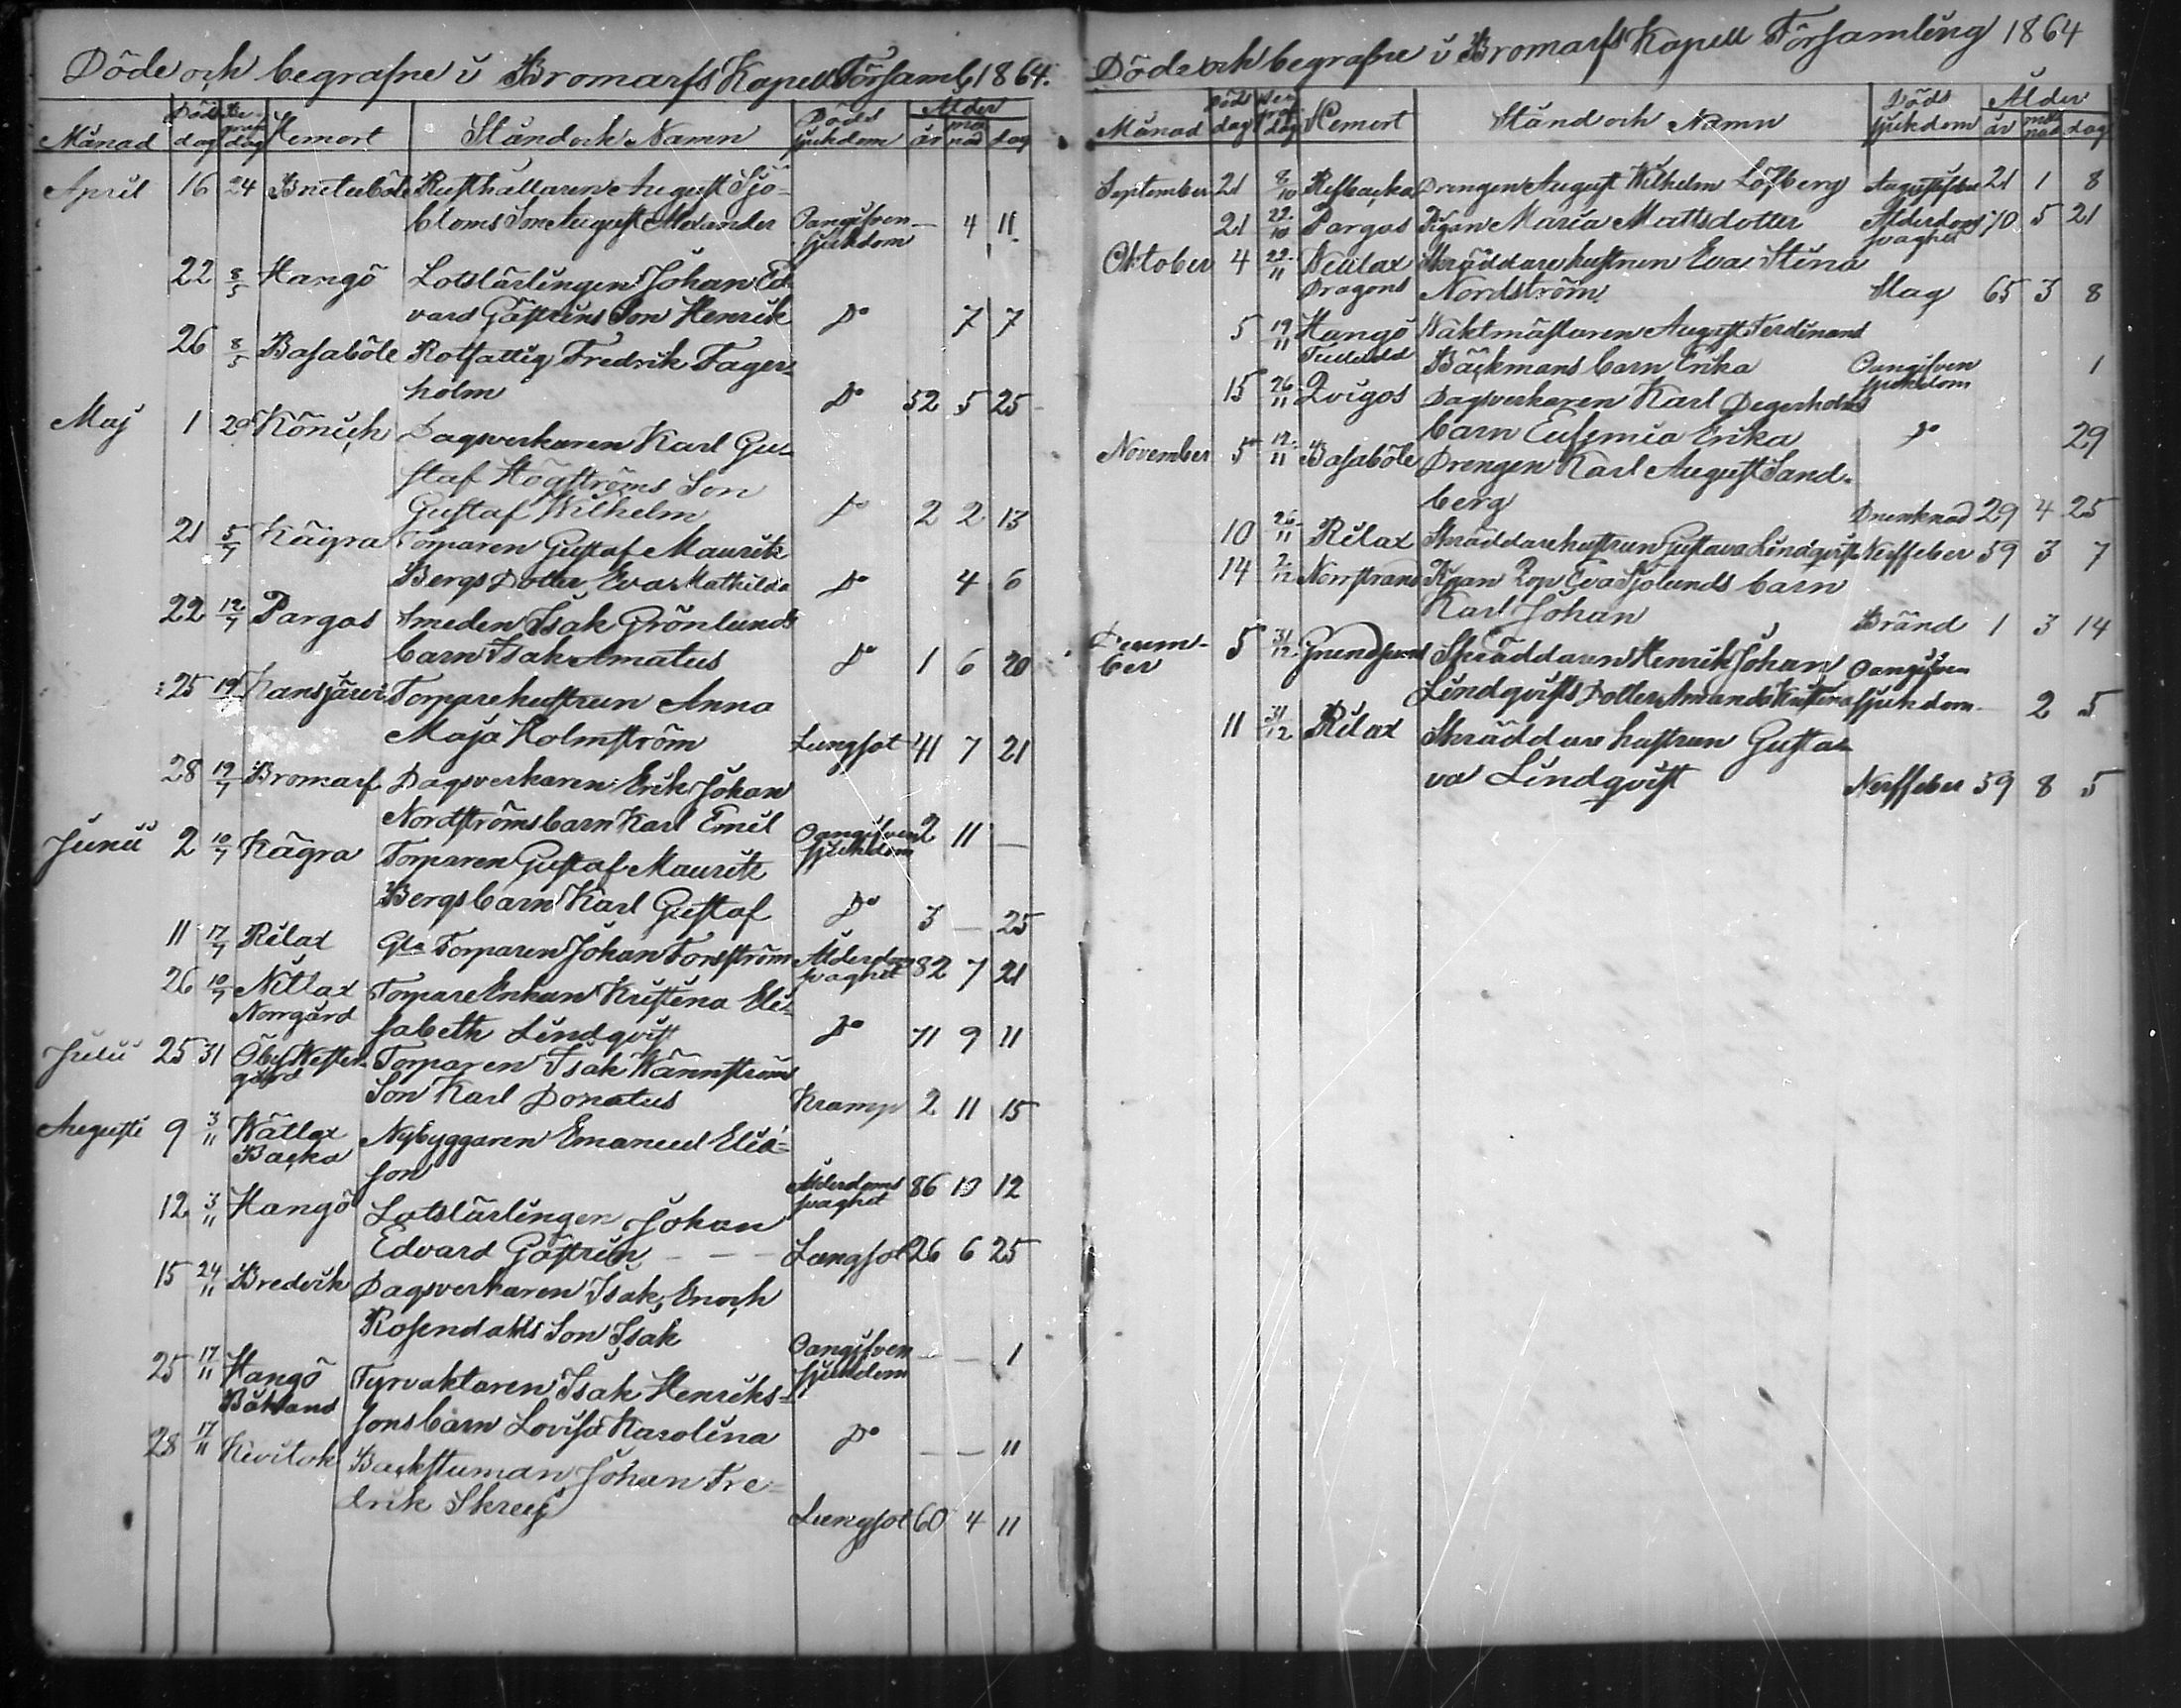 Döde och begrafne i Bromarfs Kapell Församl. 1864.
Månad Död dag Be graf dag Hemort Stånd och Namn Döds sjukdom Ålder år må nad dag
April 16 24 Rusthållaren August Sjö-
bloms Son August Alexander Oangifven sjukdom — 4 11
22 8/5 Hangö Lotslärlingen Johan Ed-
vard Gästrins Son Henrik Do 7 7
26 8/5 Basaböle Rotfattig Fredrik Fager-
holm Do 52 5 25
Maj 1 Dagsverkaren Karl Gu-
staf Högströms Son
Gustaf Wilhelm Do 2 2 13
21 5/7 Kägra Torparen Gustaf Mauritz
Bergs Dotter Eva Mathilda Do 4 6
22 12/7 Pargas Smeden Isak Grönlunds
barn Isak Amatus Do 1 6 20
25 19 Kansjärvi Torparehustrun Anna
Maja Holmström Lungsot 41 7 21
28 19/7 Bromarf Dagsverkaren Erik Johan
Nordströms barn Karl Emil Oangifven sjukdom 2 11 —
Junii 2 10/7 Kägra Torparen Gustaf Mauritz
Bergs barn Karl Gustaf Do 3 — 25
11 17/7 Rilax Gla Torparen Johan Forsström Ålderdoms svaghet 82 7 21
26 10/7 Nitlax Torpare Enkan Kristina Eli-
Norrgård sabeth Lindqvist Do 71 9 11
Julii 25 31 Öby Wester- Torparen Isak Wännström
gård Son Karl Donatus Kramp 2 11 15
Augusti 9 3/11 Wättlax Nybyggaren Emanuel Elia-
Backa son Ålderdoms svaghet 86 10 12
12 3/11 Hangö Lotslärlingen Johan
Edvard Gästrin — — Lungsot 26 6 25
15 24/11 Bredvik Dagsverkaren Isak Enoch
Rosendahls Son Isak Oangifven sjukdom — — 1
25 17/11 Hangö Fyrvaktaren Isak Henriks-
Båkland sons barn Lovisa Karolina Do — — 11
28 17/11 Kivitok Backstuman Johan Fre-
drik Skreif Lungsot 60 4 11
Döde och begrafne i Bromarfs Kapell Församling 1864
Månad Död dag Be graf dag Hemort Stånd och Namn Döds sjukdom Ålder år må nad dag
September 21 8/10 Refbacka Drengen August Wilhelm Löfberg 21 1 8
21 22/10 Pargas Pigan Maria Mattsdotter Ålderdoms svaghet 70 5 21
Oktober 4 22/11 Skräddare hustrun Eva Stina
Dragons Nordström Slag 65 3 8
5 19/11 Hangö Waktmästaren August Ferdinand
Bäckmans barn Erika Oangifven sjukdom 1
15 26/11 Qvigos Dagsverkaren Karl Degerholms
barn Eufemia Erika Do 29
November 5 12/11 Basaböle Drengen Karl August Sand-
berg Drunknad 29 4 25
10 26/11 Rilax Skräddarehustrun Gustava Lindqvist Nerffeber 59 3 7
14 2/12 Norrstrand Pigan Eva Sjölunds barn
Karl Johan Bränd 1 3 14
Decem- 5 31/12 Skräddaren Henrik Johan Oangifven
ber Lindqvists Dotter Amanda Kristina sjukdom 2 5
11 31/12 Rilax Skräddare hustrun Gusta-
va Lindqvist Nerffeber 59 8 5